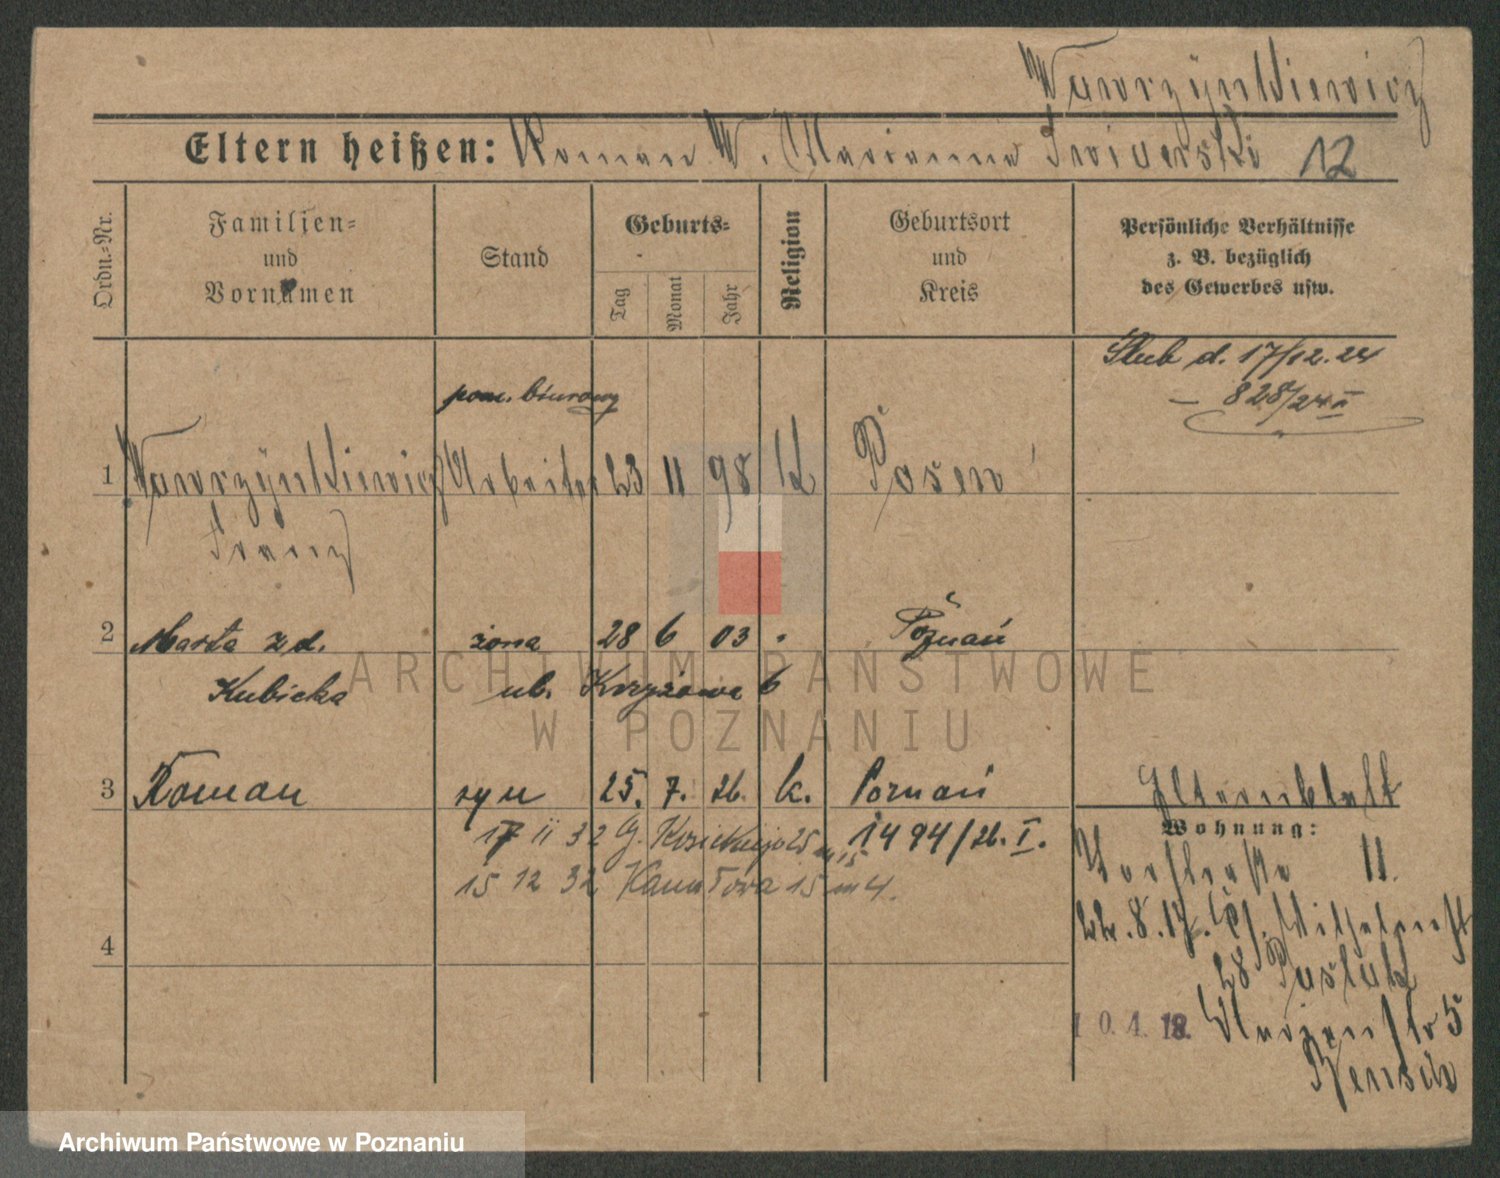 Wawrzynkiewicz
Eltern heißen: Roman W. Marianna 12
Ordn.-Nr.
Familien-
und
Vornamen
Stand
Geburts-
Tag
Monat
Jahr
Religion
Geburtsort
und
Kreis
Persönliche Verhältnisse
z. B. bezüglich
des Gewerbes usw.
Ślub d. 17/12.24
– 828/24 II
pom. biurowy
1 Wawrzynkiewicz Arbeiter 23 11 98 k Posen
Franz
2 Marta z d. żona 28 6 03 " Poznań
Kubicka ul. Krzyżowa 6
3 Roman syn 25. 7. 26. k. Poznań
1494/26. I.
Elternblatt
17 11 32 G. 25 m 15
15 12 32 15 m 4.
4
Wohnung:
11.
22.8.17.
28
10.4.18. 5
ARCHIWUM PAŃSTWOWE
W POZNANIU
Archiwum Państwowe w Poznaniu